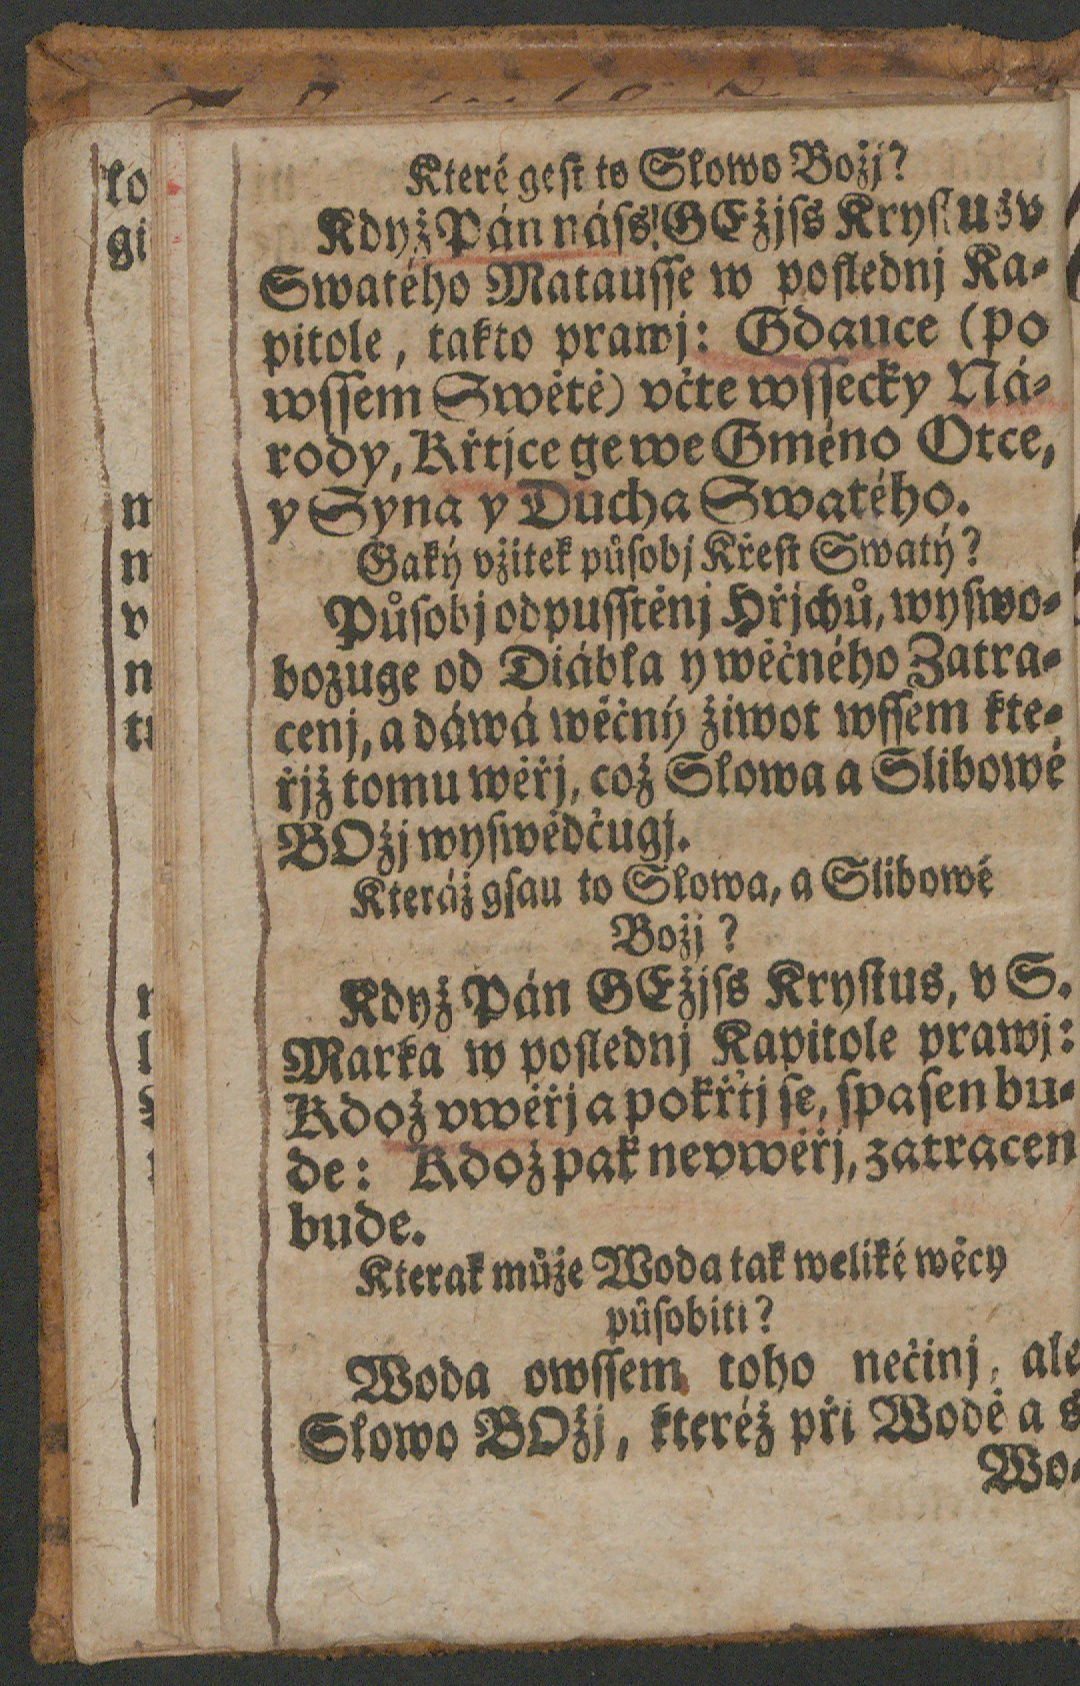 Které gest to Slowo Božj?
Když Pán náss GEžjss Krystus v
Swatého Matausse w poslednj Ka-
pitole, takto prawj: Gdauce (po
wssem Swětě) včte wssecky Ná-
rody, Křtjce ge we Gméno Otce,
y Syna y Ducha Swatého.
Gaký vžitek působj Křest Swatý?
Působj odpusstěnj Hřjchů, wyswo-
bozuge od Diábla y wěčného Zatra-
cenj, a dáwá wěčný žiwot wssem kte-
řjž tomu wěřj, což Slowa a Slibowé
BOžj wyswědčugj.
Kteráž gsau to Slowa, a Slibowé
Božj?
Když Pán GEžjss Krystus, v S.
Marka w poslednj Kapitole prawj:
Kdož vwěřj a pokřtj se, spasen bu-
de: Kdož pak nevwěřj, zatracen
bude.
Kterak může Woda tak weliké wěcy
působiti?
Woda owssem toho nečinj, ale
Slowo BOžj, kteréž při Wodě a s
Wo-